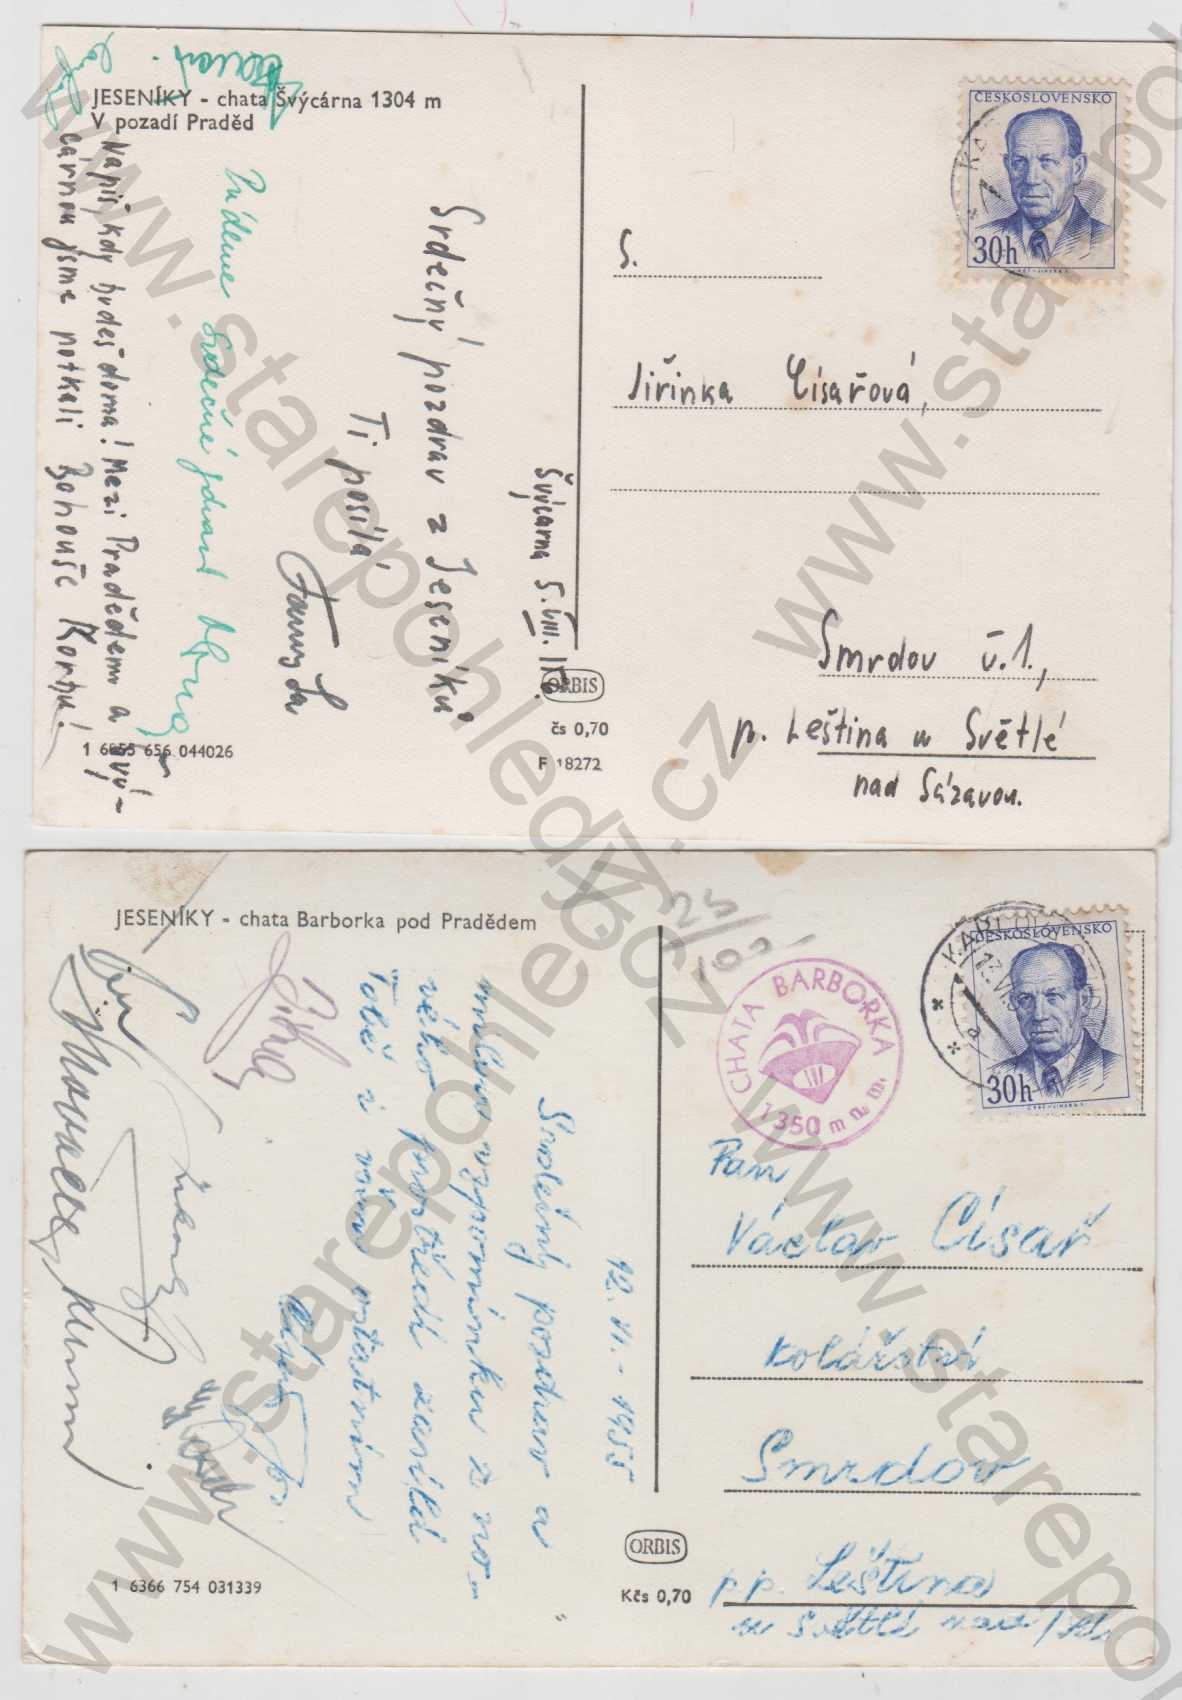 JESENÍKY - chata Švýcárna 1304 m
V pozadí Praděd
Napiš, kdy budeš doma! Mezi Pradědem a Švý-
cárnou jsme potkali Bohouše Korbů!
Srdečné zdraví
Srdečný pozdrav z Jeseníků
Ti posílá
Švýcárna 5. VIII.
ČESKOSLOVENSKO
30h
S.
Jiřinka Císařová,
Smrdov č.1.,
p. Leština u Světlé
nad Sázavou.
ORBIS
čs 0,70
F 18272
1 6855 656 044026
JESENÍKY - chata Barborka pod Pradědem
Srdečný pozdrav a
milou vzpomínku z no-
vého prostředí zasílá
Tobě i všem ostatním
12. VI. - 1955
25/
100,-
CHATA BARBORKA
1350 m n. m.
ČESKOSLOVENSKO
30h
Pan
Václav Císař
kolářství
Smrdov
p.p. Leština
u Světlé nad
ORBIS
Kčs 0,70
1 6366 754 031339
www.starepohledy.cz